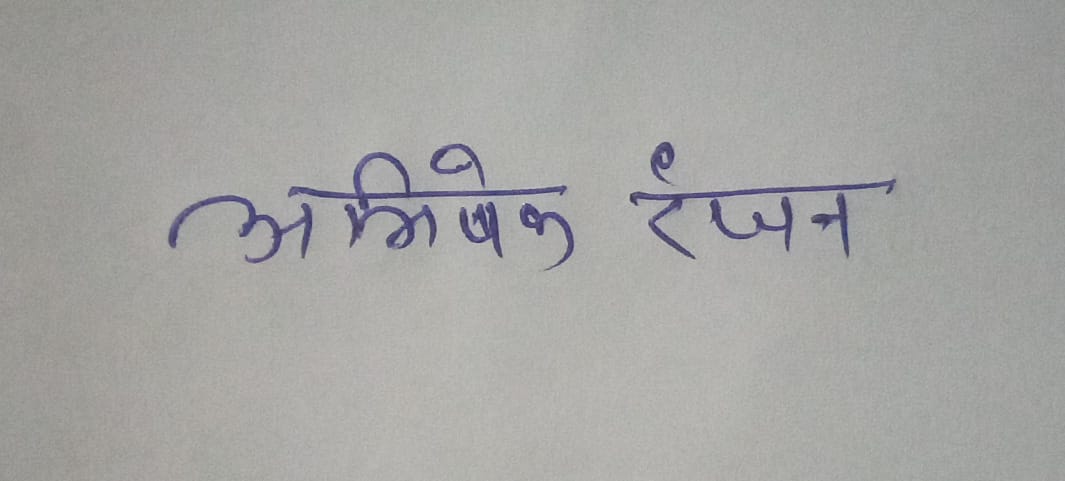 अभिषेक रंजन